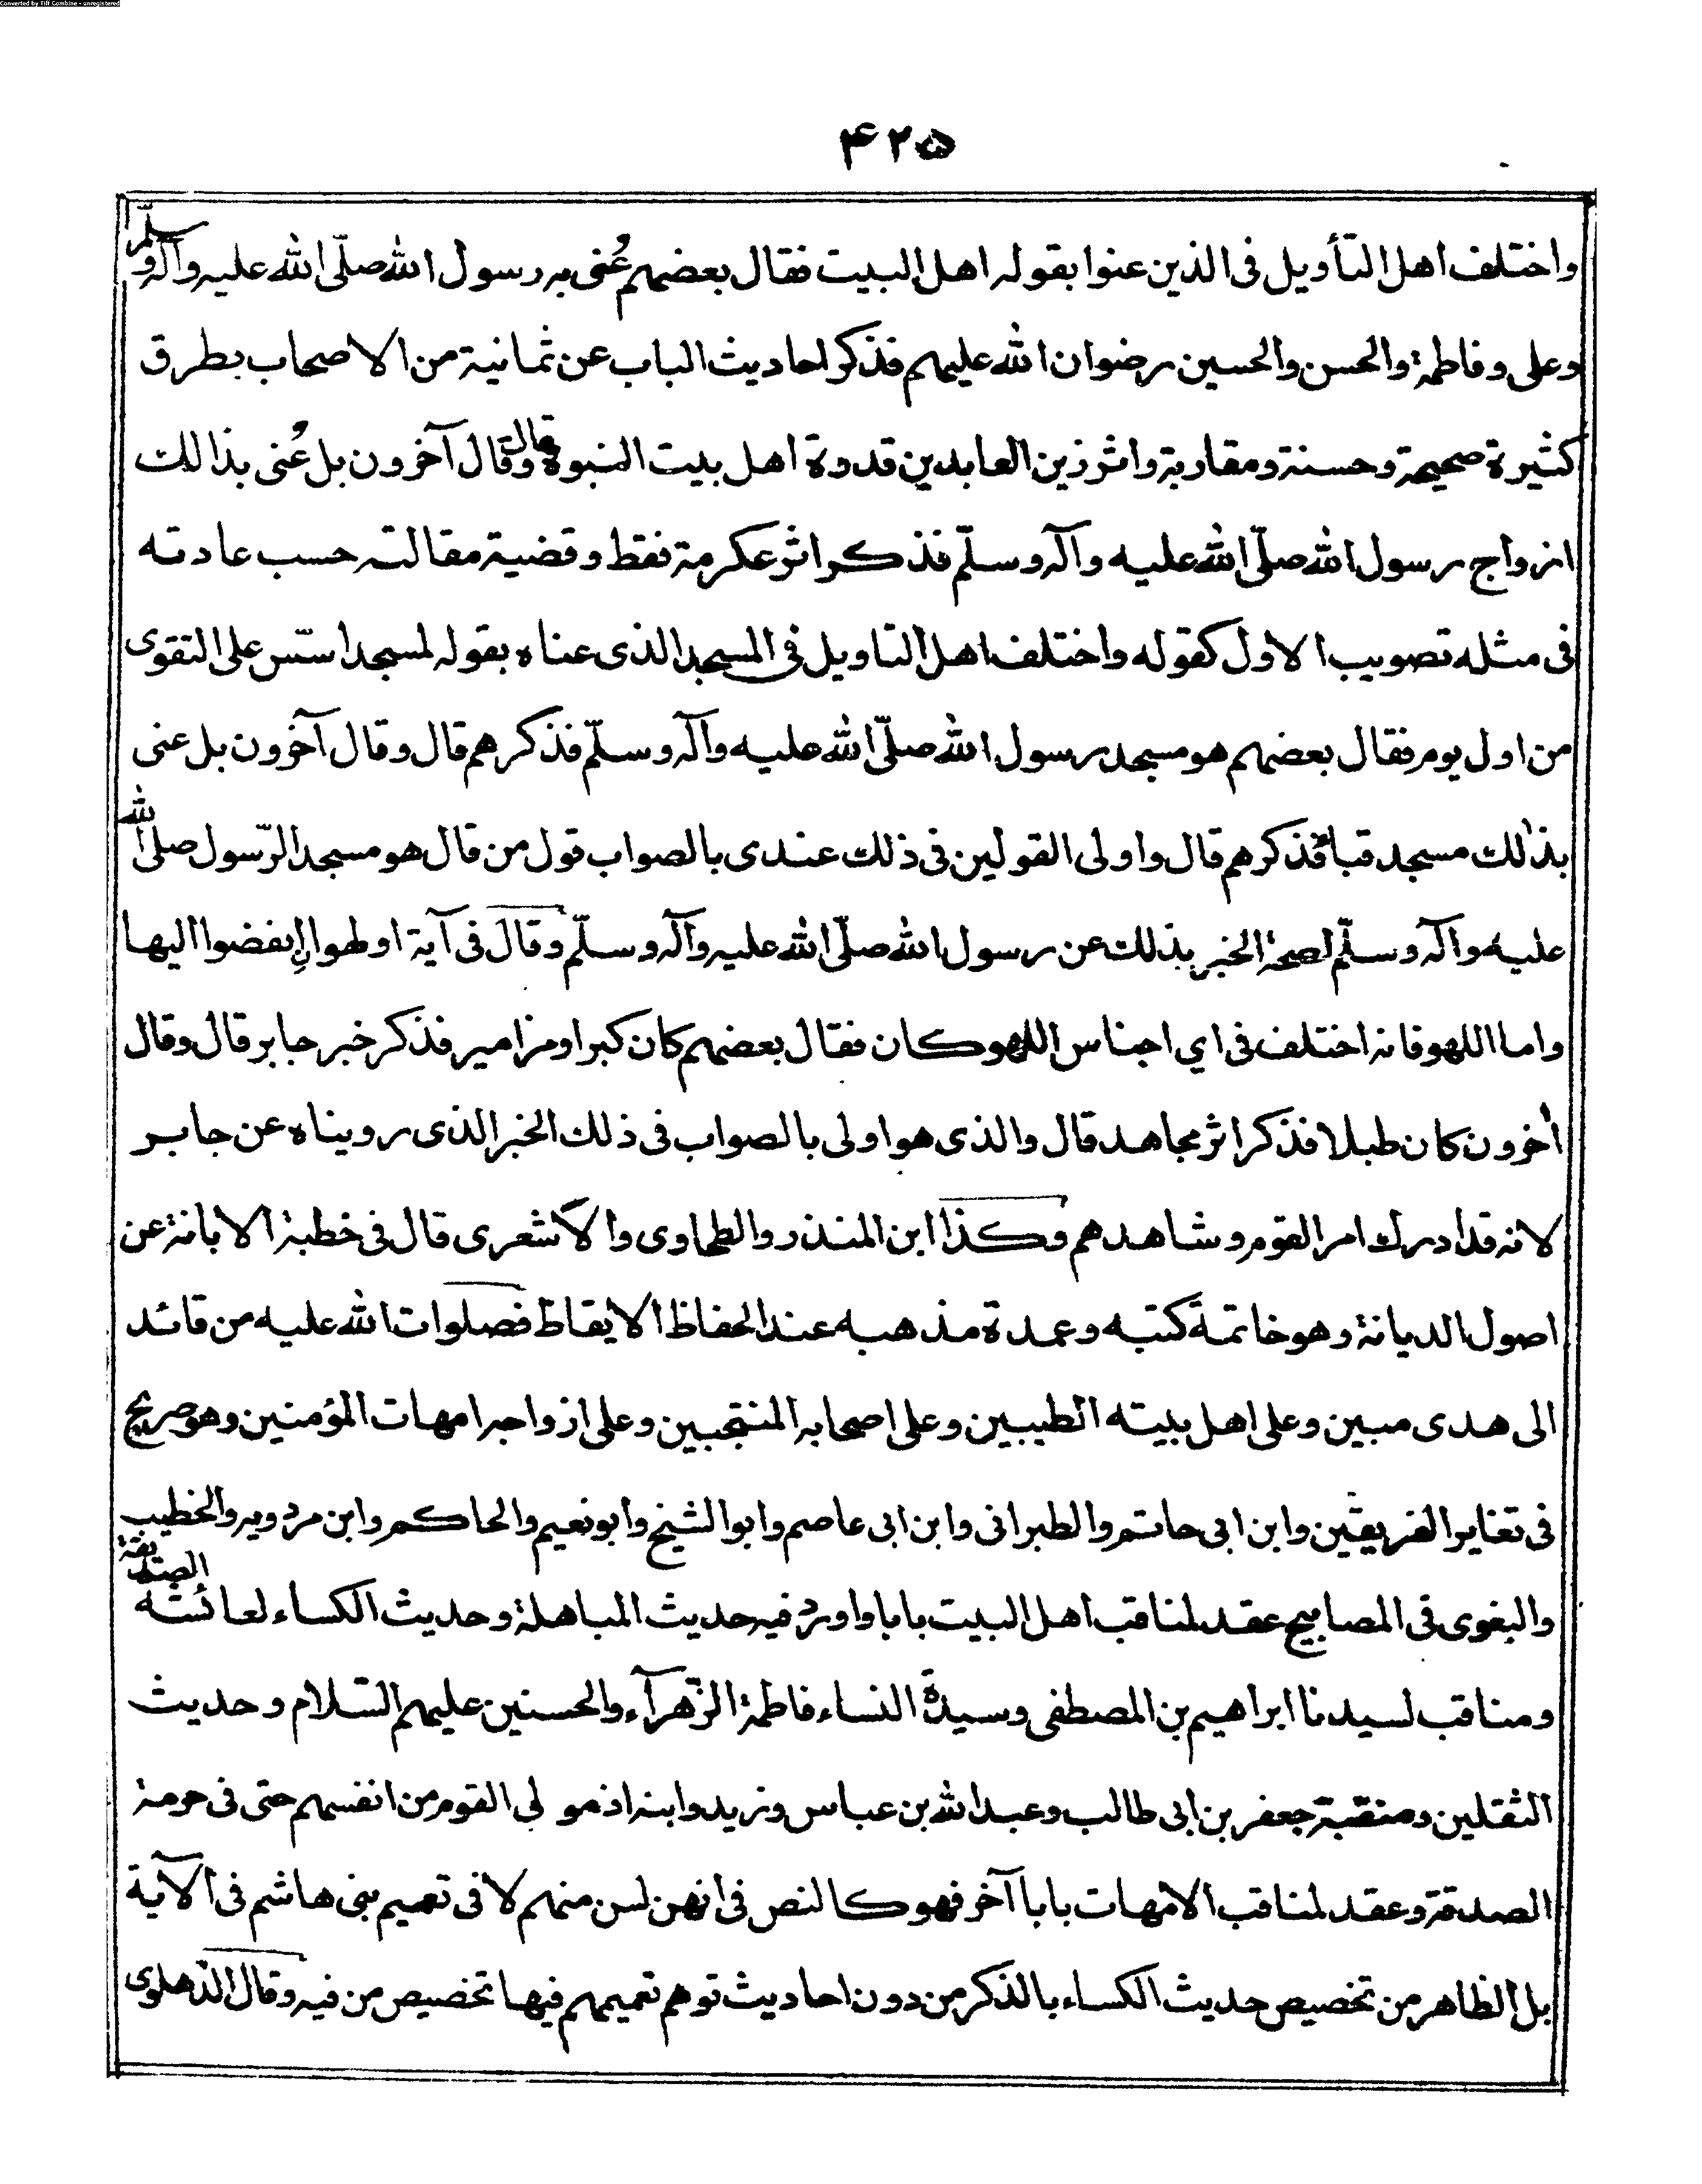 Converted by Tiff Combine - unregistered
۴۲۵
واختلف اهل التأويل فى الذين عنوا بقوله اهل البيت فقال بعضهم عُنى به رسول الله صلّى الله عليه وآله وسلّم
وعلى وفاطمة والحسن والحسين رضوان الله عليهم فذكر احاديث الباب عن ثمانية من الاصحاب بطرق
كثيرة صحيحة وحسنة ومقاربة واثر زين العابدين قدوة اهل بيت النبوة قال وقال آخرون بل عُنى بذالك
ازواج رسول الله صلّى الله عليه وآله وسلّم فذكر اثر عكرمة فقط وقضية مقالته حسب عادته
فى مثله تصويب الاول كقوله واختلف اهل التاويل فى المسجد الذى عناه بقوله لمسجد اسّس على التقوى
من اول يوم فقال بعضهم هو مسجد رسول الله صلّى الله عليه وآله وسلّم فذكرهم قال وقال آخرون بل عنى
بذلك مسجد قباء فذكرهم قال واولى القولين فى ذلك عندى بالصواب قول من قال هو مسجد الرّسول صلى الله
عليه وآله وسلّم لصحة الخبر بذلك عن رسول الله صلّى الله عليه وآله وسلّم وقال فى آية اولهوا إنفضوا اليها
واما اللهو فانه اختلف فى اي اجناس اللهو كان فقال بعضهم كان كبرا ومزامير فذكر خبر جابر قال وقال
أخرون كان طبلا فذكر اثر مجاهد قال والذى هو اولى بالصواب فى ذلك الخبر الذى رويناه عن جابر
لانه قد ادرك امر القوم وشاهدهم وكذا ابن المنذر والطحاوى والاشعرى قال فى خطبة الابانة عن
اصول الديانة وهو خاتمة كتبه وعمدة مذهبه عند الحفاظ الايقاظ فصلوات الله عليه من قائد
الى هدى مبين وعلى اهل بيته الطيبين وعلى اصحابه المنتجبين وعلى ازواجه امهات المؤمنين وهو صريح
فى تغاير الفريقين وابن ابى حاتم والطبرانى وابن ابى عاصم وابو الشيخ وأبو نعيم والحاكم وابن مردويه والخطيب
والبغوى فى المصابيح عقد لمناقب اهل البيت بابا واورد فيه حديث المباهلة وحديث الكساء لعائشه الصديقة
ومناقب لسيدنا ابراهيم بن المصطفى وسيدة النساء فاطمة الزّهرآء والحسنين عليهم السّلام وحديث
الثقلين ومنقبة جعفر بن ابى طالب وعبد الله بن عباس وزيد وابنه اذ مولى القوم من انفسهم حتى فى حرمة
الصدقة وعقد لمناقب الامهات بابا آخر فهو كالنص فى انهن لسن منهم لا فى تعميم بنى هاشم فى الآية
بل الظاهر من تخصيص حديث الكساء بالذكر من دون احاديث توهم تعميمهم فيها تخصيص من فيه وقال الدّهلوى